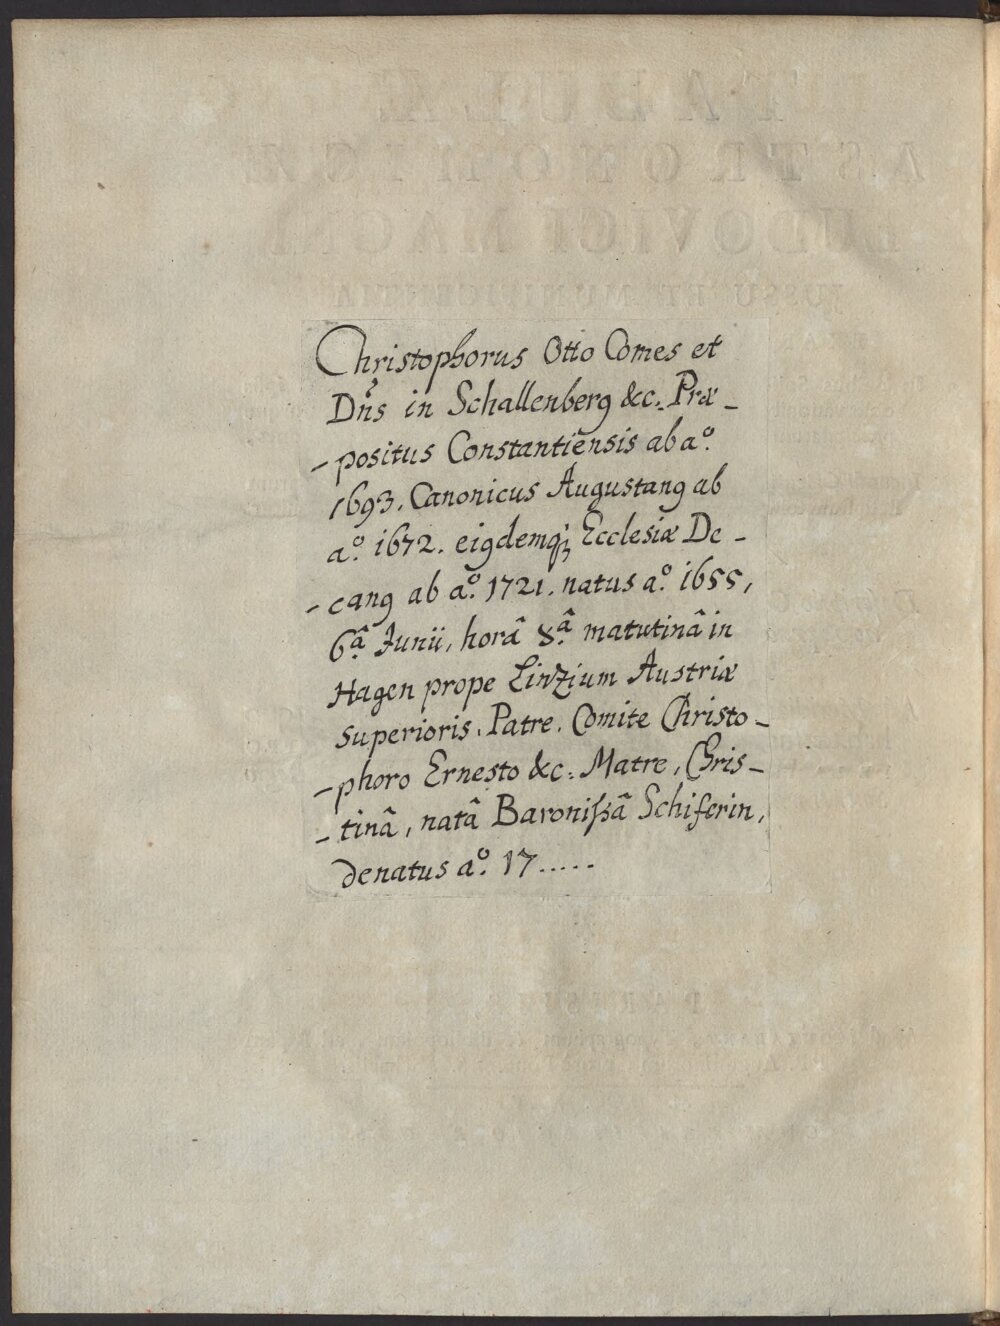 Christophorus Otto Comes et
Dn̄s in Schallenberg &c. Præ-
-positus Constantiensis ab aº.
1693. Canonicus Augustanꝰ ab
aº. 1672. eiꝰdemqꝫ Ecclesiæ De-
-canꝰ ab aº. 1721. natus aº. 1655,
6.â Junii, horâ 8.â matutinâ in
Hagen prope Linzium Austriæ
superioris, Patre, Comite Christo-
-phoro Ernesto &c: Matre, Chris-
-tinâ, natâ Baronissâ Schiferin,
denatus aº. 17.....
TABULÆ
ASTRONOMICÆ
LUDOVICI MAGNI
JUSSU ET MUNIFICENTIA